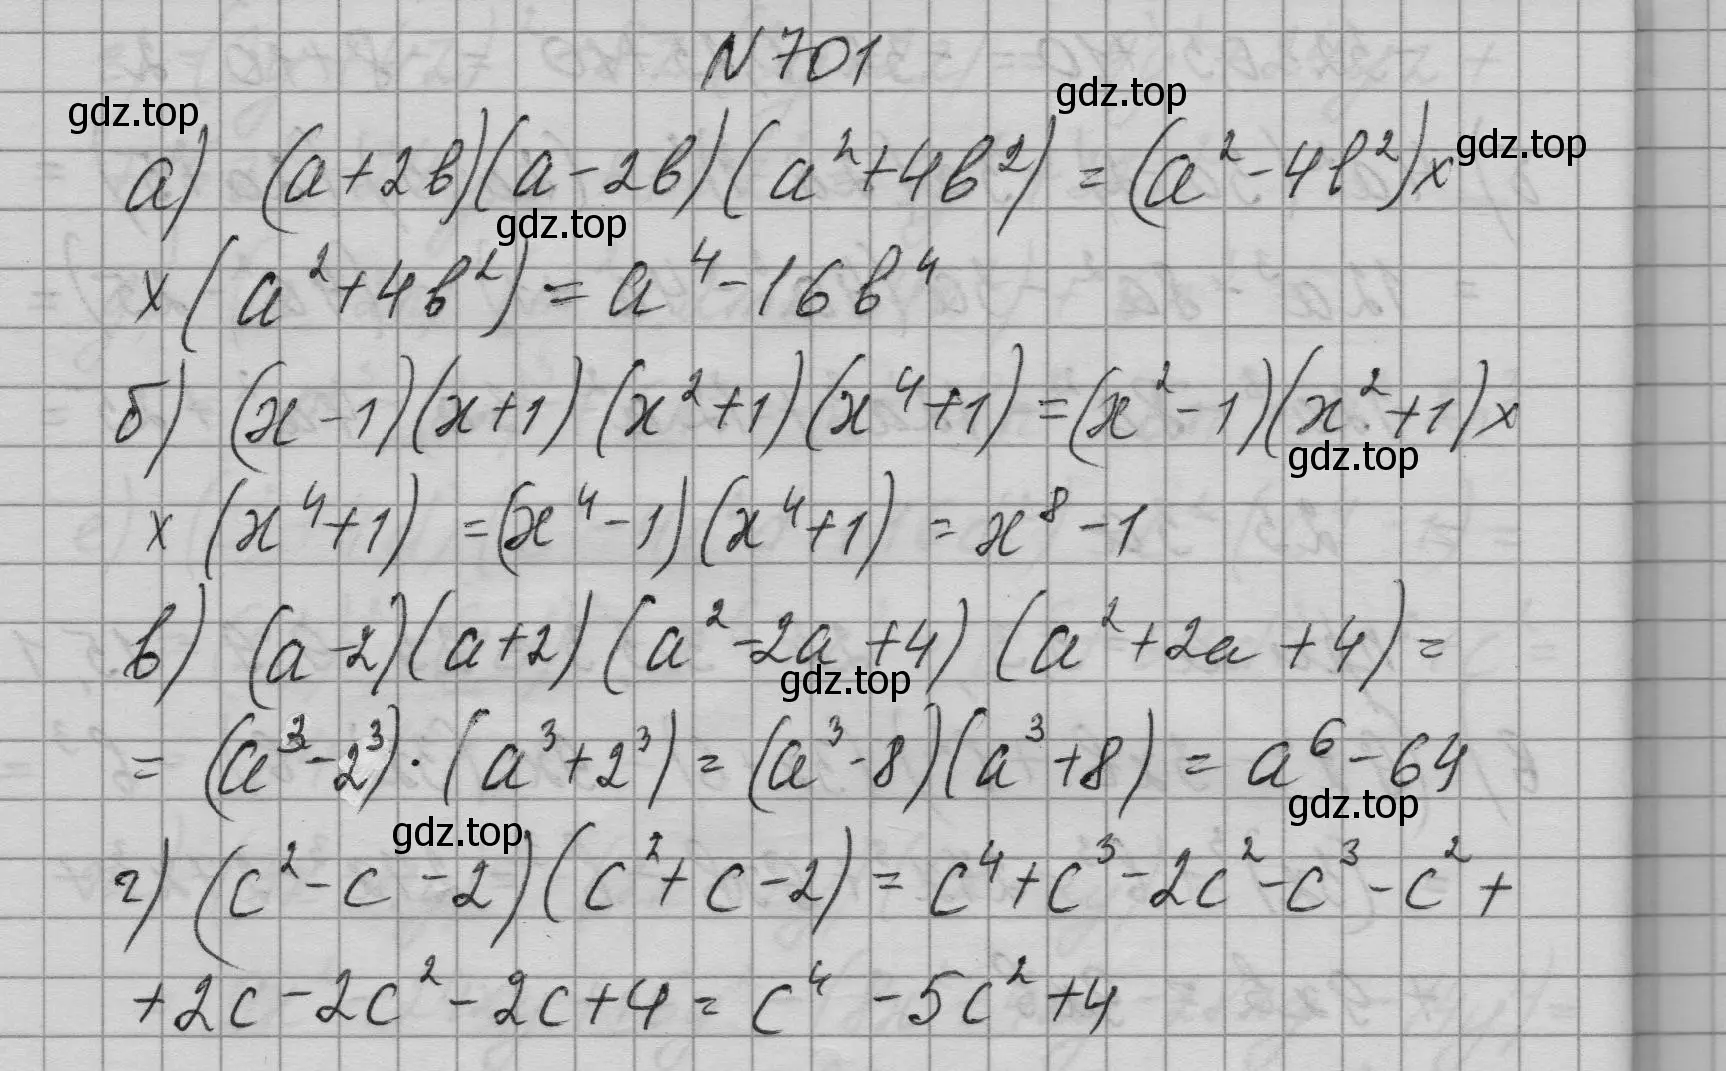 N 701
gdz.top
gdz.top
а) (a+2b)(a-2b)(a²+4b²) = (a²-4b²)×
gdz.top
gdz.top
×(a²+4b²) = a⁴-16b⁴
б) (x-1)(x+1)(x²+1)(x⁴+1) = (x²-1)(x²+1)×
gdz.top
×(x⁴+1) = (x⁴-1)(x⁴+1) = x⁸-1
в) (a-2)(a+2)(a²-2a+4)(a²+2a+4) =
gdz.top
= (a³-2³)·(a³+2³) = (a³-8)(a³+8) = a⁶-64
gdz.top
gdz.top
г) (c²-c-2)(c²+c-2) = c⁴+c³-2c²-c³-c²+
+2c-2c²-2c+4 = c⁴-5c²+4